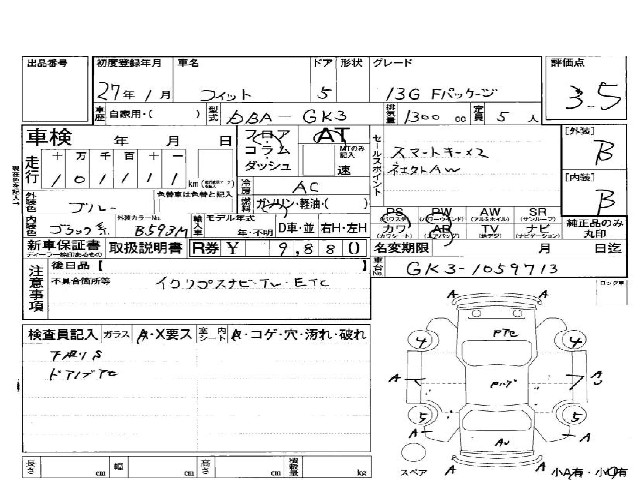 出品番号 初度登録年月 車名 ドア 形状 グレード 評価点
27年 1月 フィット 5 13G Fパッケージ 3.5
車歴 自家用・( ) 型式 DBA-GK3 排気量 1300 cc 定員 5 人
車検 年 月 日 フロア AT
コラム MTのみ記入
ダッシュ 速
セールスポイント
スマートキー×2
[外装] B
走行 十 万 千 百 十 一
101111 km
冷房 AC
[内装] B
外装色 ブルー 色替車は色替と記入
燃料 ガソリン・軽油・( )
内装色 ブラック系 外装カラーNo. B593M
輸入車 モデル年式 年・不明 D車・並 右H・左H
PS PW AW SR
(パワステ) (パワーウインド) (アルミホイル) (サンルーフ)
カワ AB TV ナビ
(カワシート) (エアバッグ) (純テレビ) (ナビゲーション)
純正品のみ丸印
新車保証書 取扱説明書 R券 ¥ 9,880 名変期限 月 日迄
車台No. GK3-1059713
注意事項
後日品【 】
不具合箇所等 イクリプスナビ・TV・ETC
検査員記入 ガラス A・X要ス 室内 シート A・コゲ・穴・汚れ・破れ
下廻りS
ドアノブTC
PTC
4 4
A A
5 5
A A
A A
スペア
小A有・小U有
長さ cm 幅 cm 高さ cm 積載量 kg